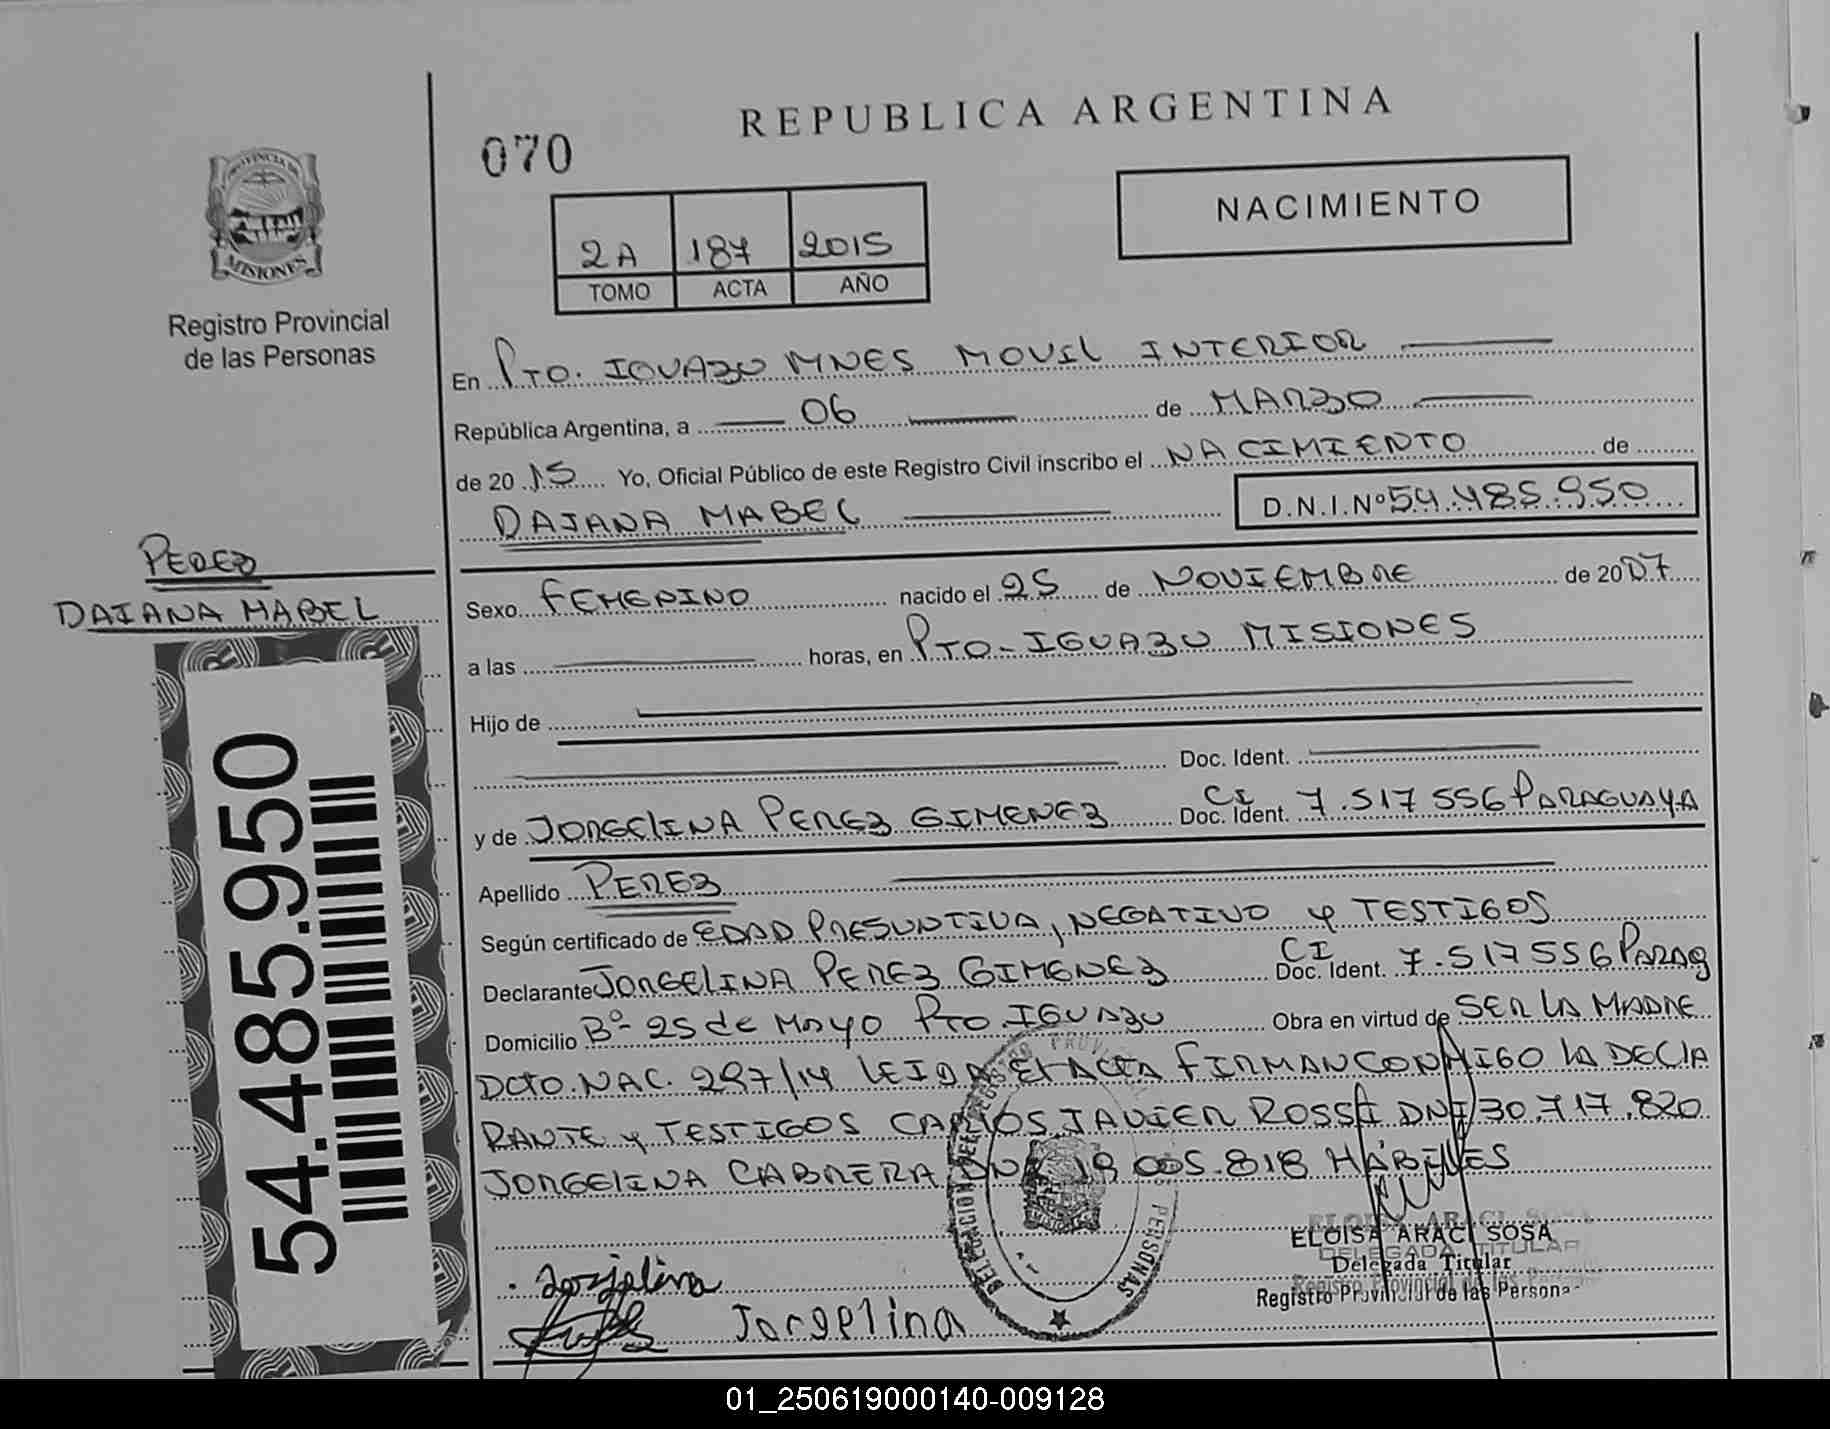 REPUBLICA ARGENTINA
070
NACIMIENTO
2A 187 2015
TOMO ACTA AÑO
PROVINCIA DE
MISIONES
Registro Provincial
de las Personas
En PTO. IGUAZU MNES MOVIL INTERIOR
República Argentina, a 06 de MARZO
de 20 15 Yo, Oficial Público de este Registro Civil inscribo el NACIMIENTO de
DAIANA MABEL D.N.I.Nº 54.485.950
PEREZ
DAIANA MABEL
54.485.950
Sexo FEMENINO nacido el 25 de NOVIEMBRE de 20 07
a las horas, en PTO-IGUAZU MISIONES
Hijo de
Doc. Ident.
y de JORGELINA PEREZ GIMENEZ Doc. Ident. CI 7.517 556 PARAGUAYA
Apellido PEREZ
Según certificado de EDAD PRESUNTIVA, NEGATIVO Y TESTIGOS
Declarante JORGELINA PEREZ GIMENEZ Doc. Ident. CI 7.517 556 PARAG
Domicilio Bº 25 de MAYO PTO. IGUAZU Obra en virtud de SER LA MADRE
DCTO. NAC. 297/14 LEIDA El ACTA FIRMAN CONMIGO LA DECLA
RANTE Y TESTIGOS CARLOS JAVIER ROSSI DNI 30.717.820
JORGELINA CABRERA DNI 19 005.818 HÁBILES
DELEGACION
PERSONAS
MISIONES
ELOISA ARACI SOSA
Delegada Titular
Registro Provincial de las Persona
Jorgelina
Jorgelina
01_250619000140-009128